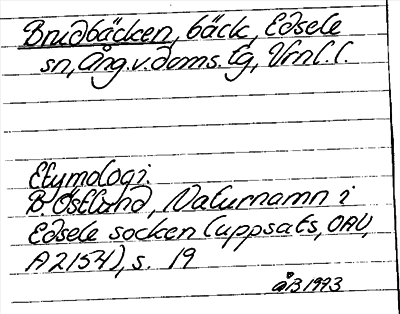 Brudbäcken, bäck, Edsele
sn, Ång. v. doms. tg, Vrnl. l.
Etymologi.
B. Östlund, Naturnamn i
Edsele socken (uppsats, OAU,
A2154), s. 19
åB 1993